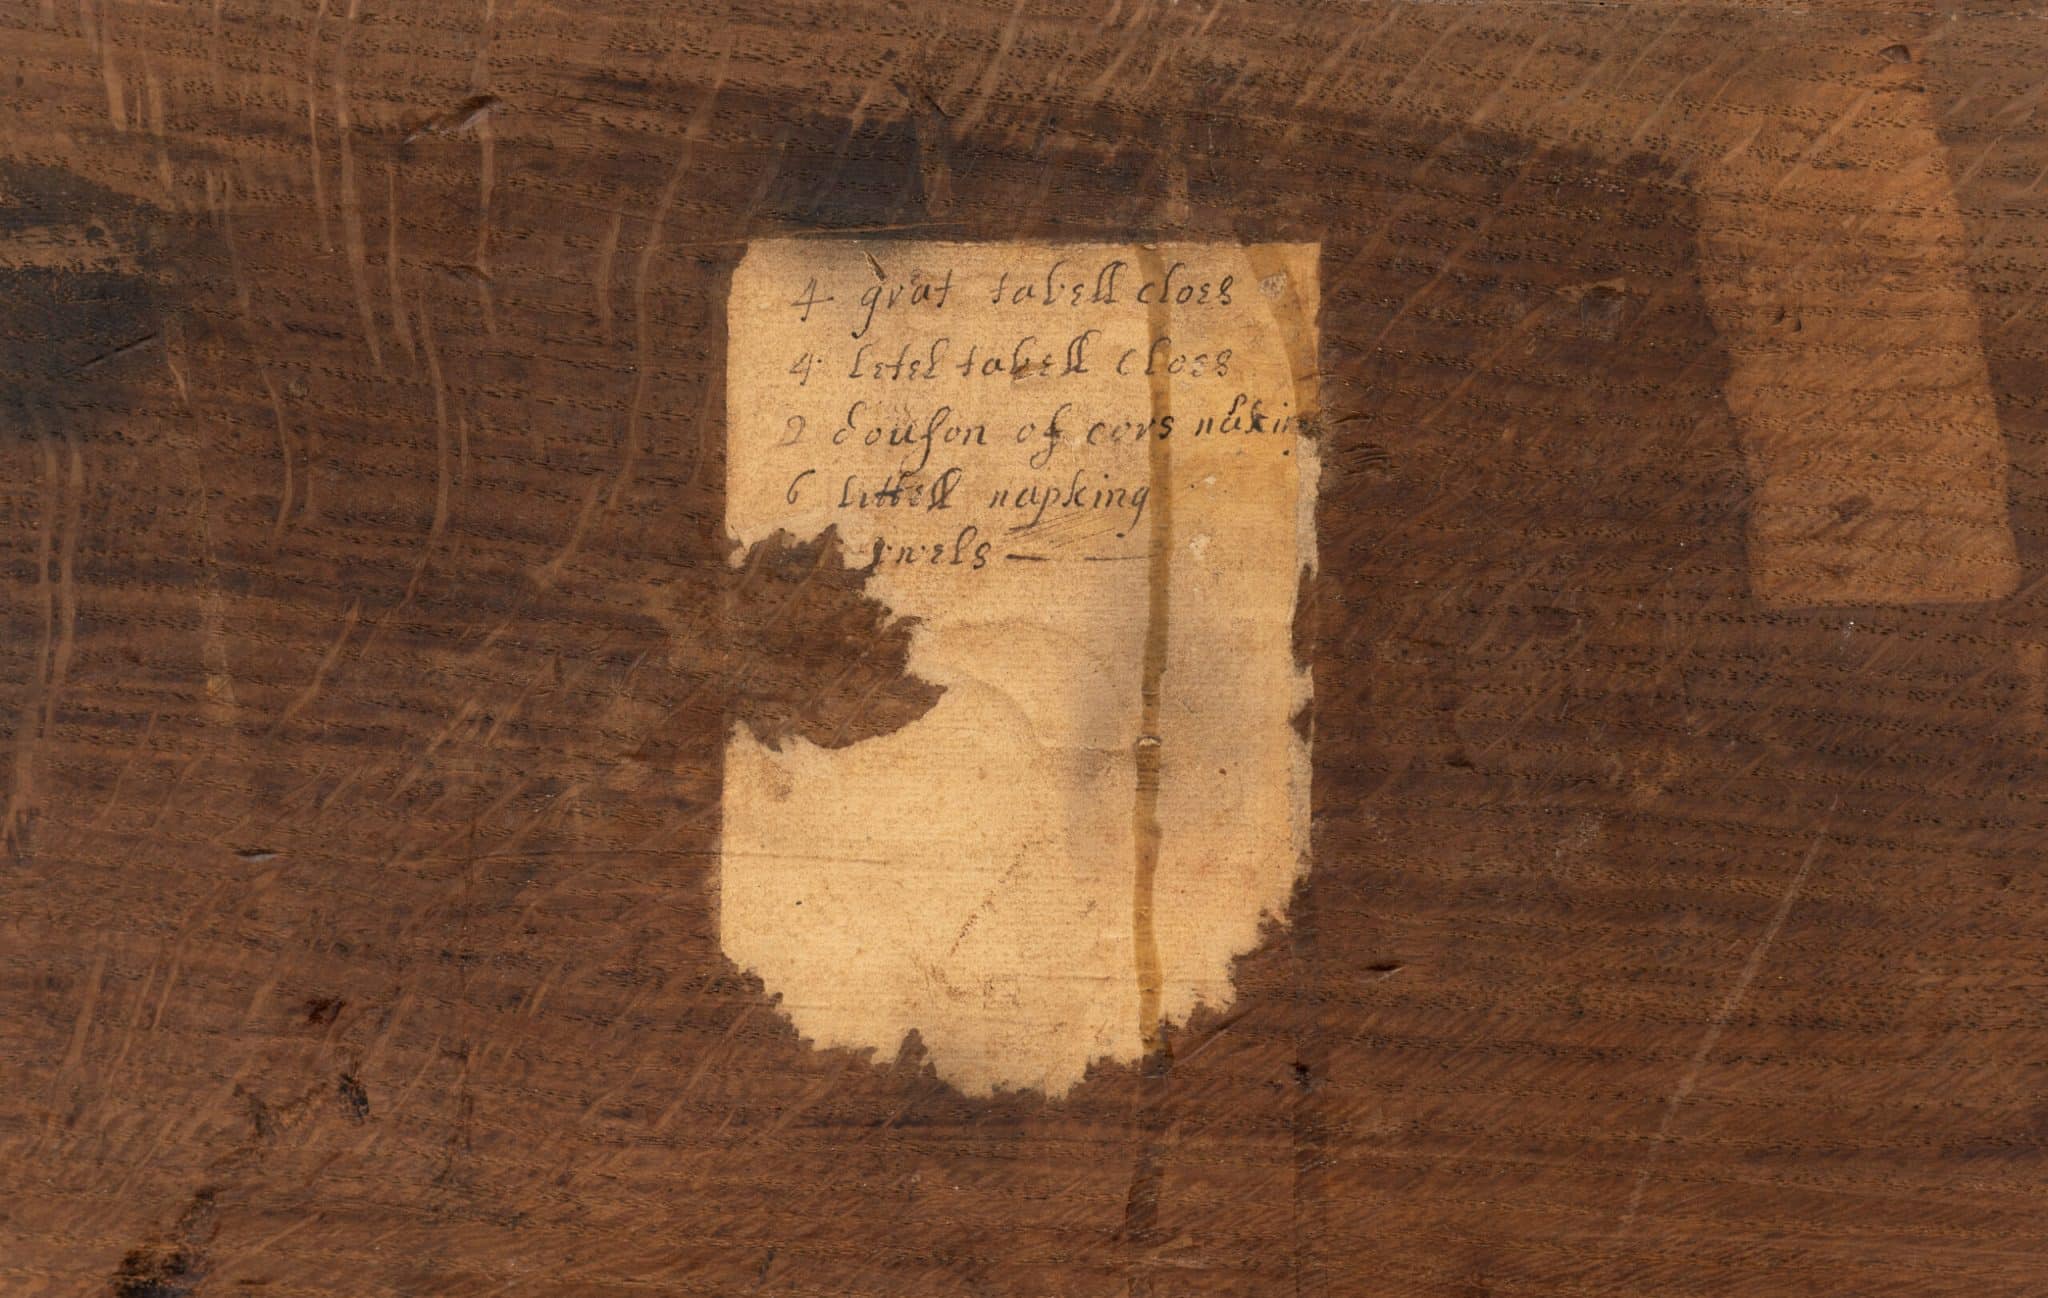 4 grat tabell cloes
4 letel tabell cloes
2 douson of cors
6 littell napking